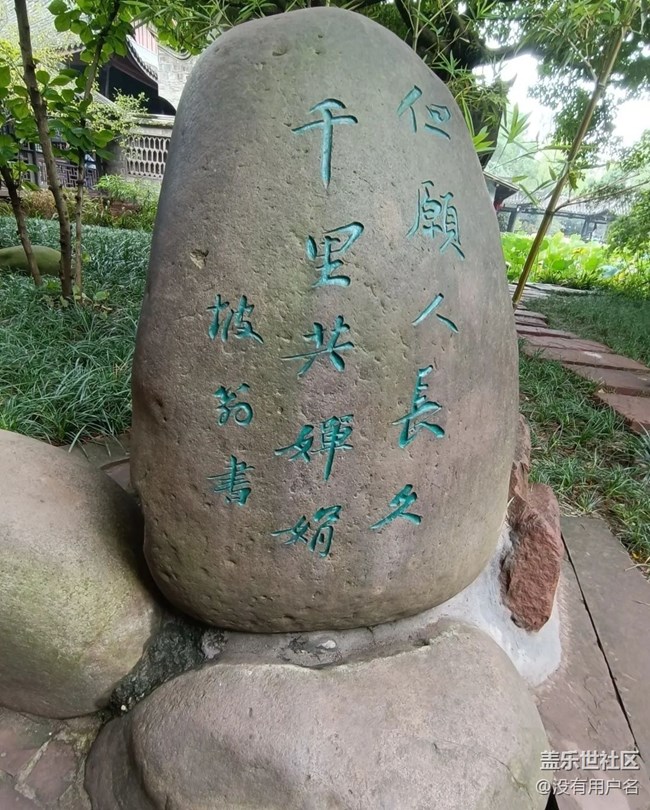 但願人長久
千里共嬋娟
坡翁書
盖乐世社区
@没有用户名